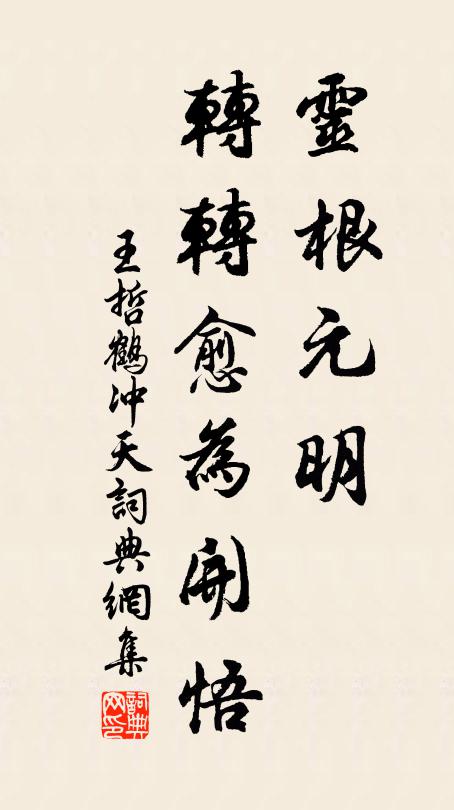 靈根元明
轉轉愈為開悟
王哲鶴冲天詞典網集
詞典网印